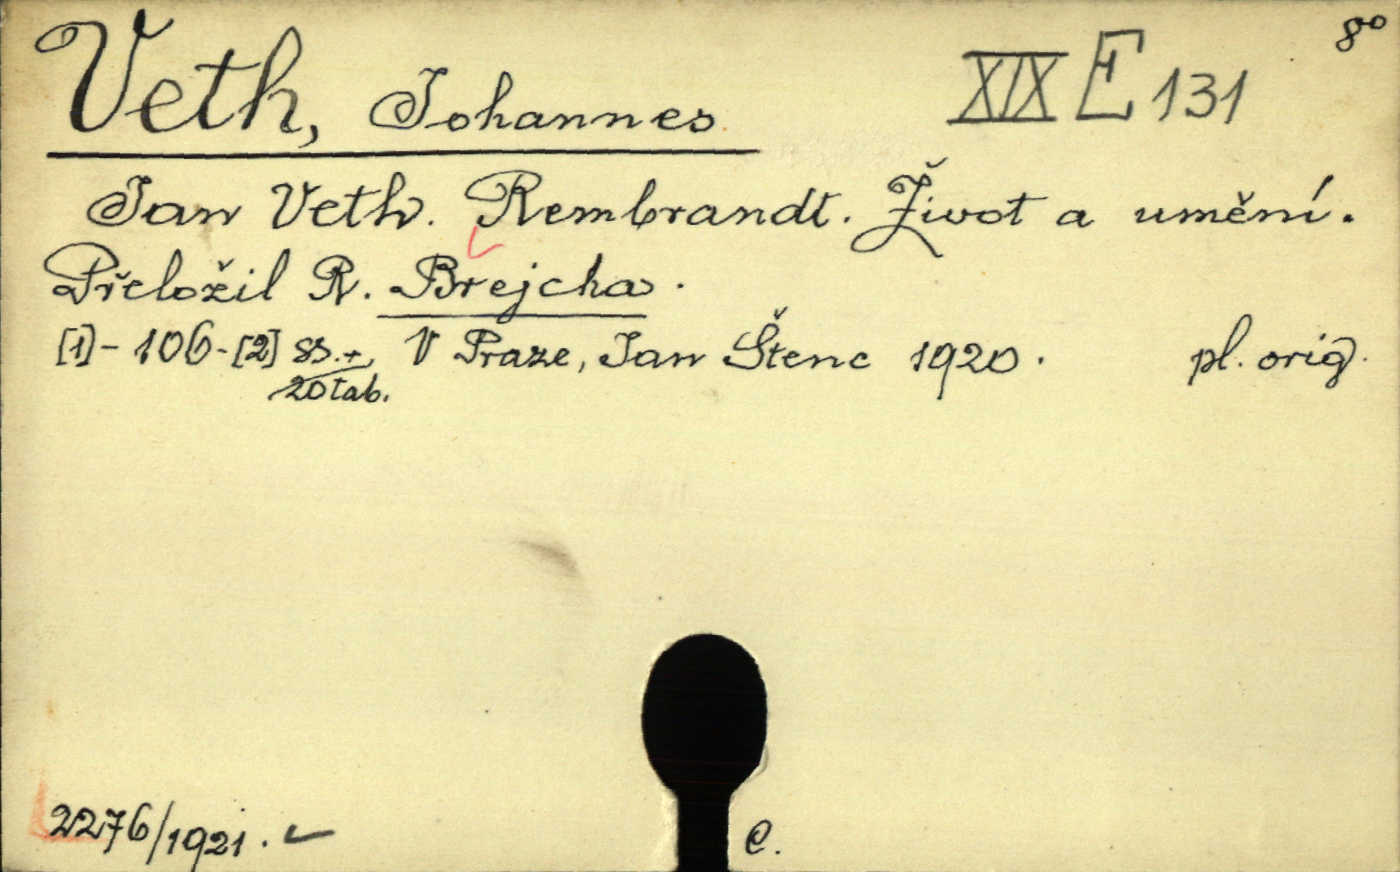 8°
Veth, Johannes
XIX E 131
Jan Veth. Rembrandt. Život a umění.
Přeložil R. Břejcha.
[1]-106-[2] ss.+ V Praze, Jan Štenc 1920. pl. orig.
20 tab.
2276/1921.
C.